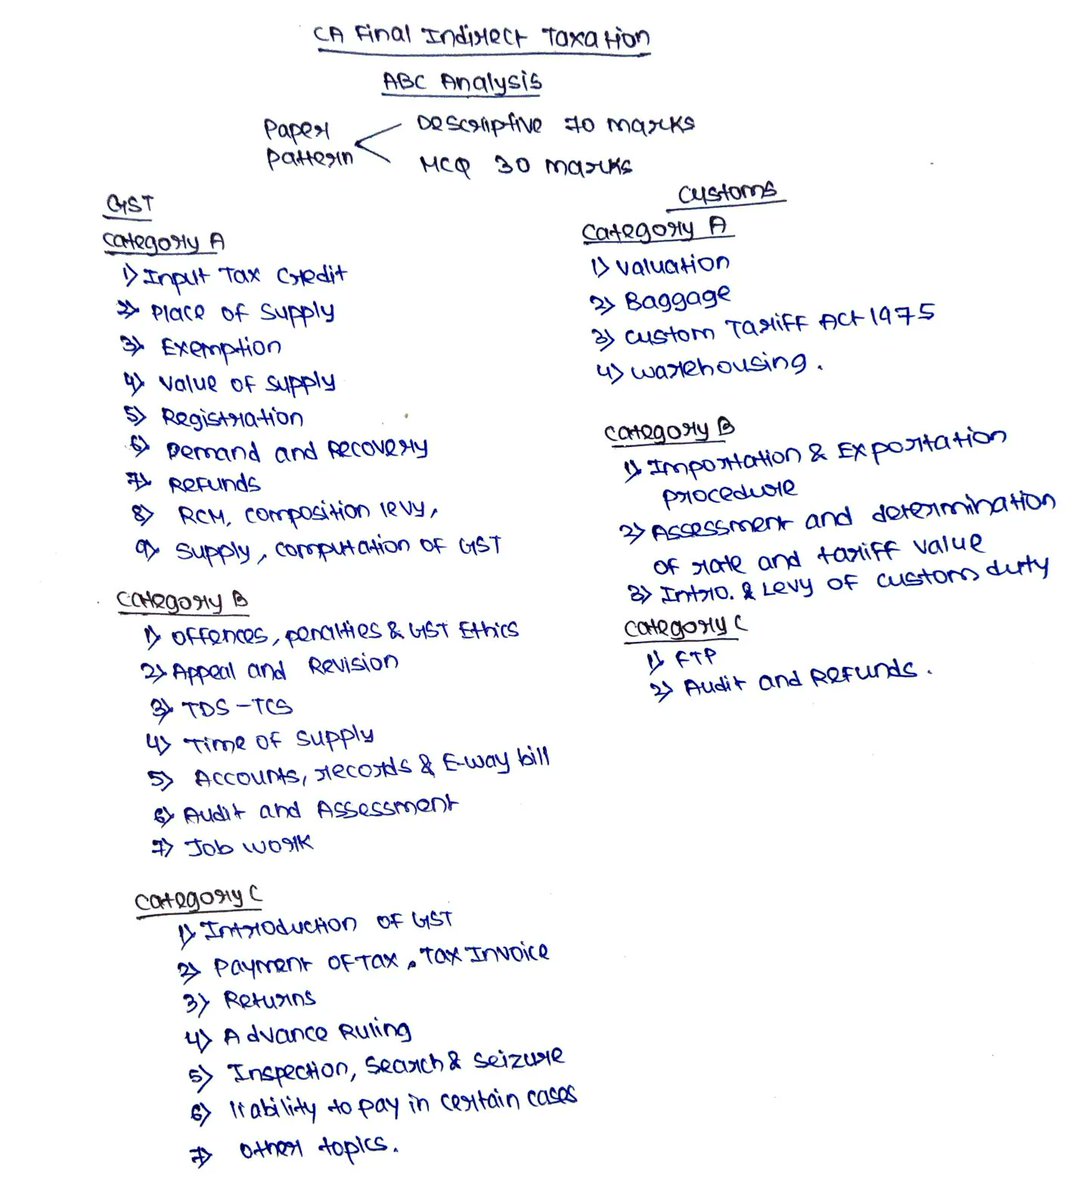 CA Final Indirect Taxation
ABC Analysis
Paper Pattern
Descriptive 70 marks
MCQ 30 marks
GST
Category A
1) Input Tax Credit
2) Place of Supply
3) Exemption
4) Value of Supply
5) Registration
6) Demand and Recovery
7) Refunds
8) RCM, Composition levy,
9) Supply, Computation of GST
Category B
1) Offences, penalties & GST Ethics
2) Appeal and Revision
3) TDS-TCS
4) Time of Supply
5) Accounts, records & E-way bill
6) Audit and Assessment
7) Job work
Category C
1) Introduction of GST
2) Payment of Tax, Tax Invoice
3) Returns
4) Advance Ruling
5) Inspection, Search & Seizure
6) liability to pay in certain cases
7) Other topics.
Customs
Category A
1) Valuation
2) Baggage
3) Custom Tariff Act 1975
4) Warehousing.
Category B
1) Importation & Exportation
Procedure
2) Assessment and determination
of rate and tariff value
3) Intro. & Levy of custom duty
Category C
1) FTP
2) Audit and Refunds.